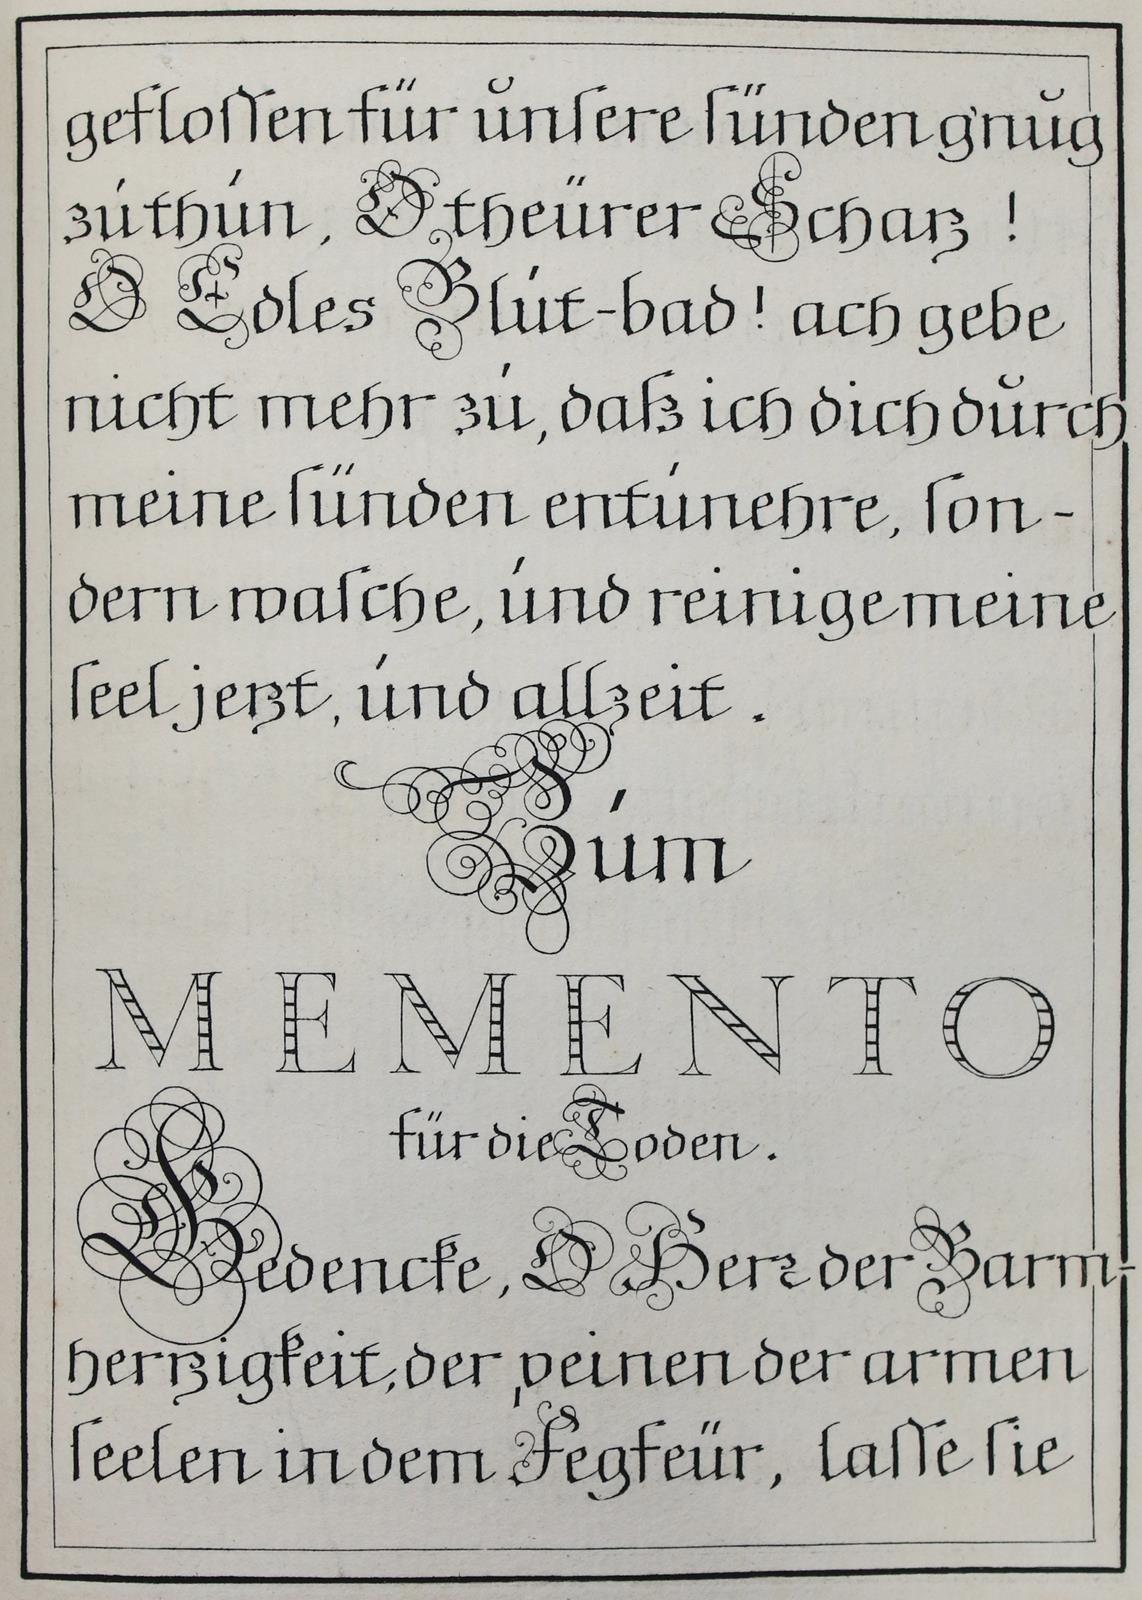 gefloſſen für ŭnſere ſünden g'nŭg
zúthún, O theürer Schatz !
O Edles Blút-bad! ach gebe
nicht mehr zú, daß ich dich dŭrch
meine ſünden entúnehre, ſon-
dern waſche, únd reinige meine
ſeel jetzt, únd allzeit.
Zúm
MEMENTO
für die Toden.
Gedencke, O Herz der Barm-
hertzigkeit, der peinen der armen
ſeelen in dem Fegfeür, laſſe ſie